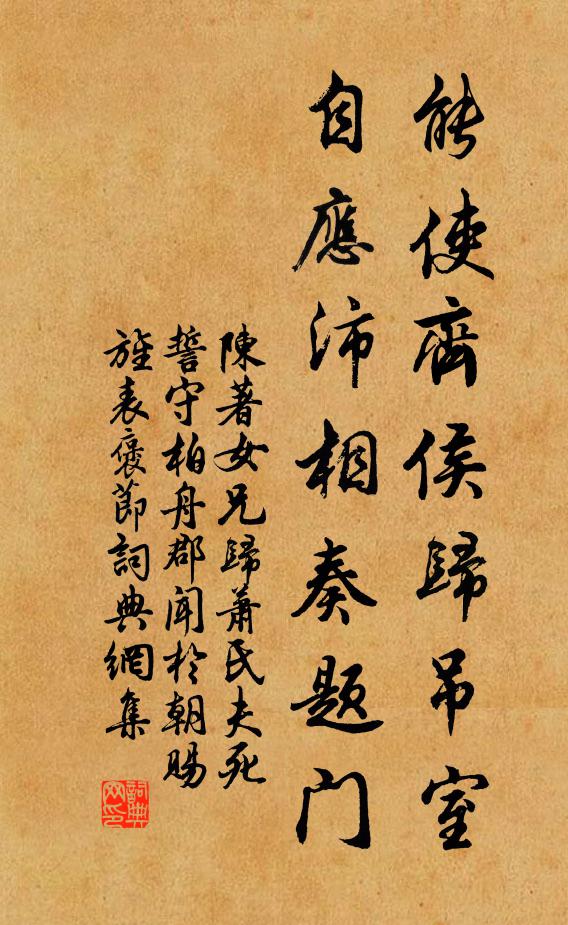 能使齊侯歸吊室
自應沛相奏題门
陳著女兄歸蕭氏夫死
誓守柏舟郡闻於朝賜
旌表褒節詞典網集
詞典网印